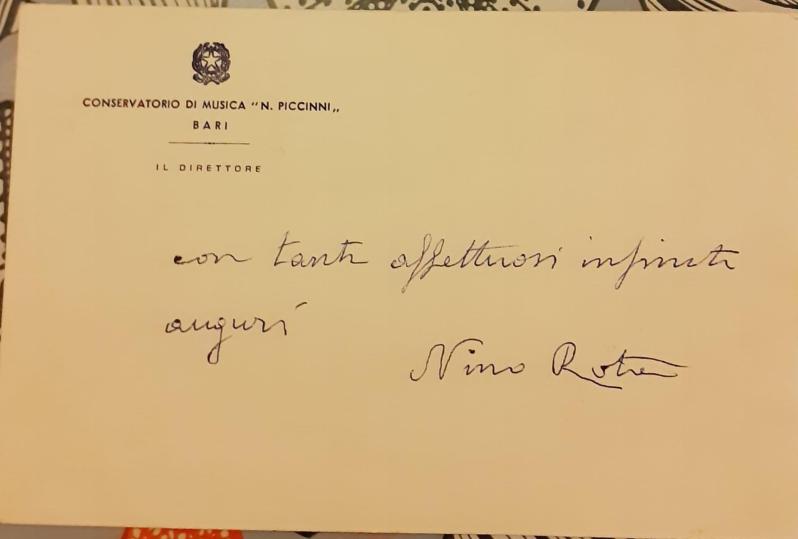 CONSERVATORIO DI MUSICA "N. PICCINNI„
BARI
IL DIRETTORE
con tanti affettuosi infiniti
auguri
Nino Rota